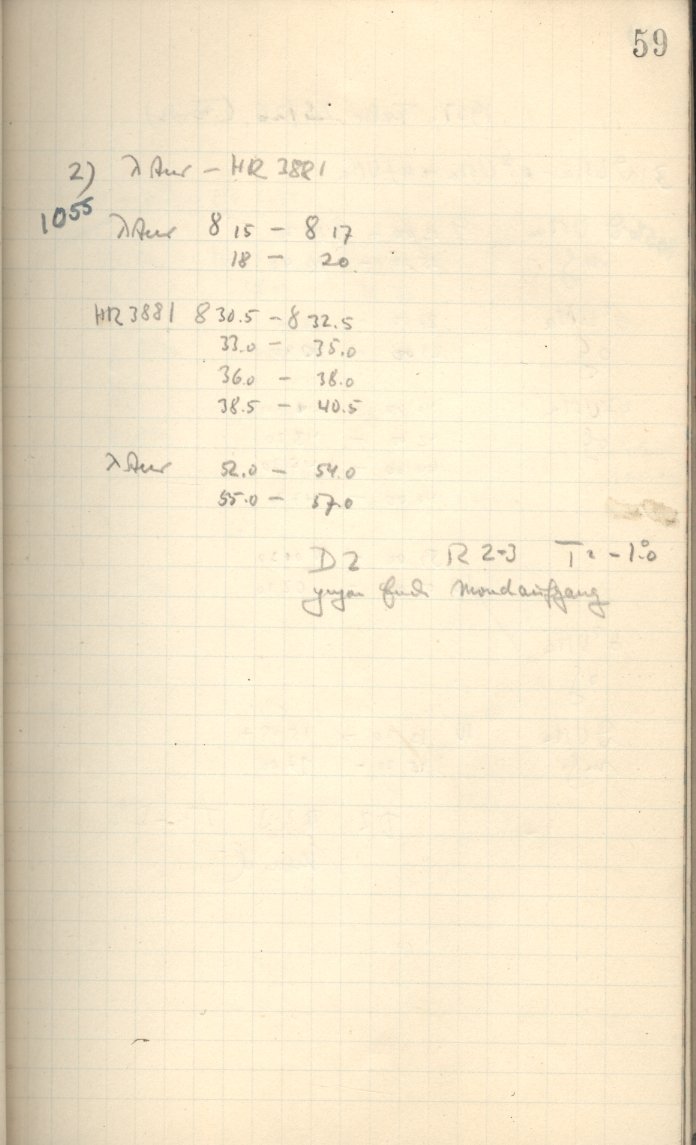 59
2) λ Aur – HR 3881
1055
λ Aur 8 15 – 8 17
18 – 20
HR 3881 8 30.5 – 8 32.5
33.0 – 35.0
36.0 – 38.0
38.5 – 40.5
λ Aur 52.0 – 54.0
55.0 – 57.0
D 2 R 2-3 T = -1.°0
gegen Ende Mondaufgang